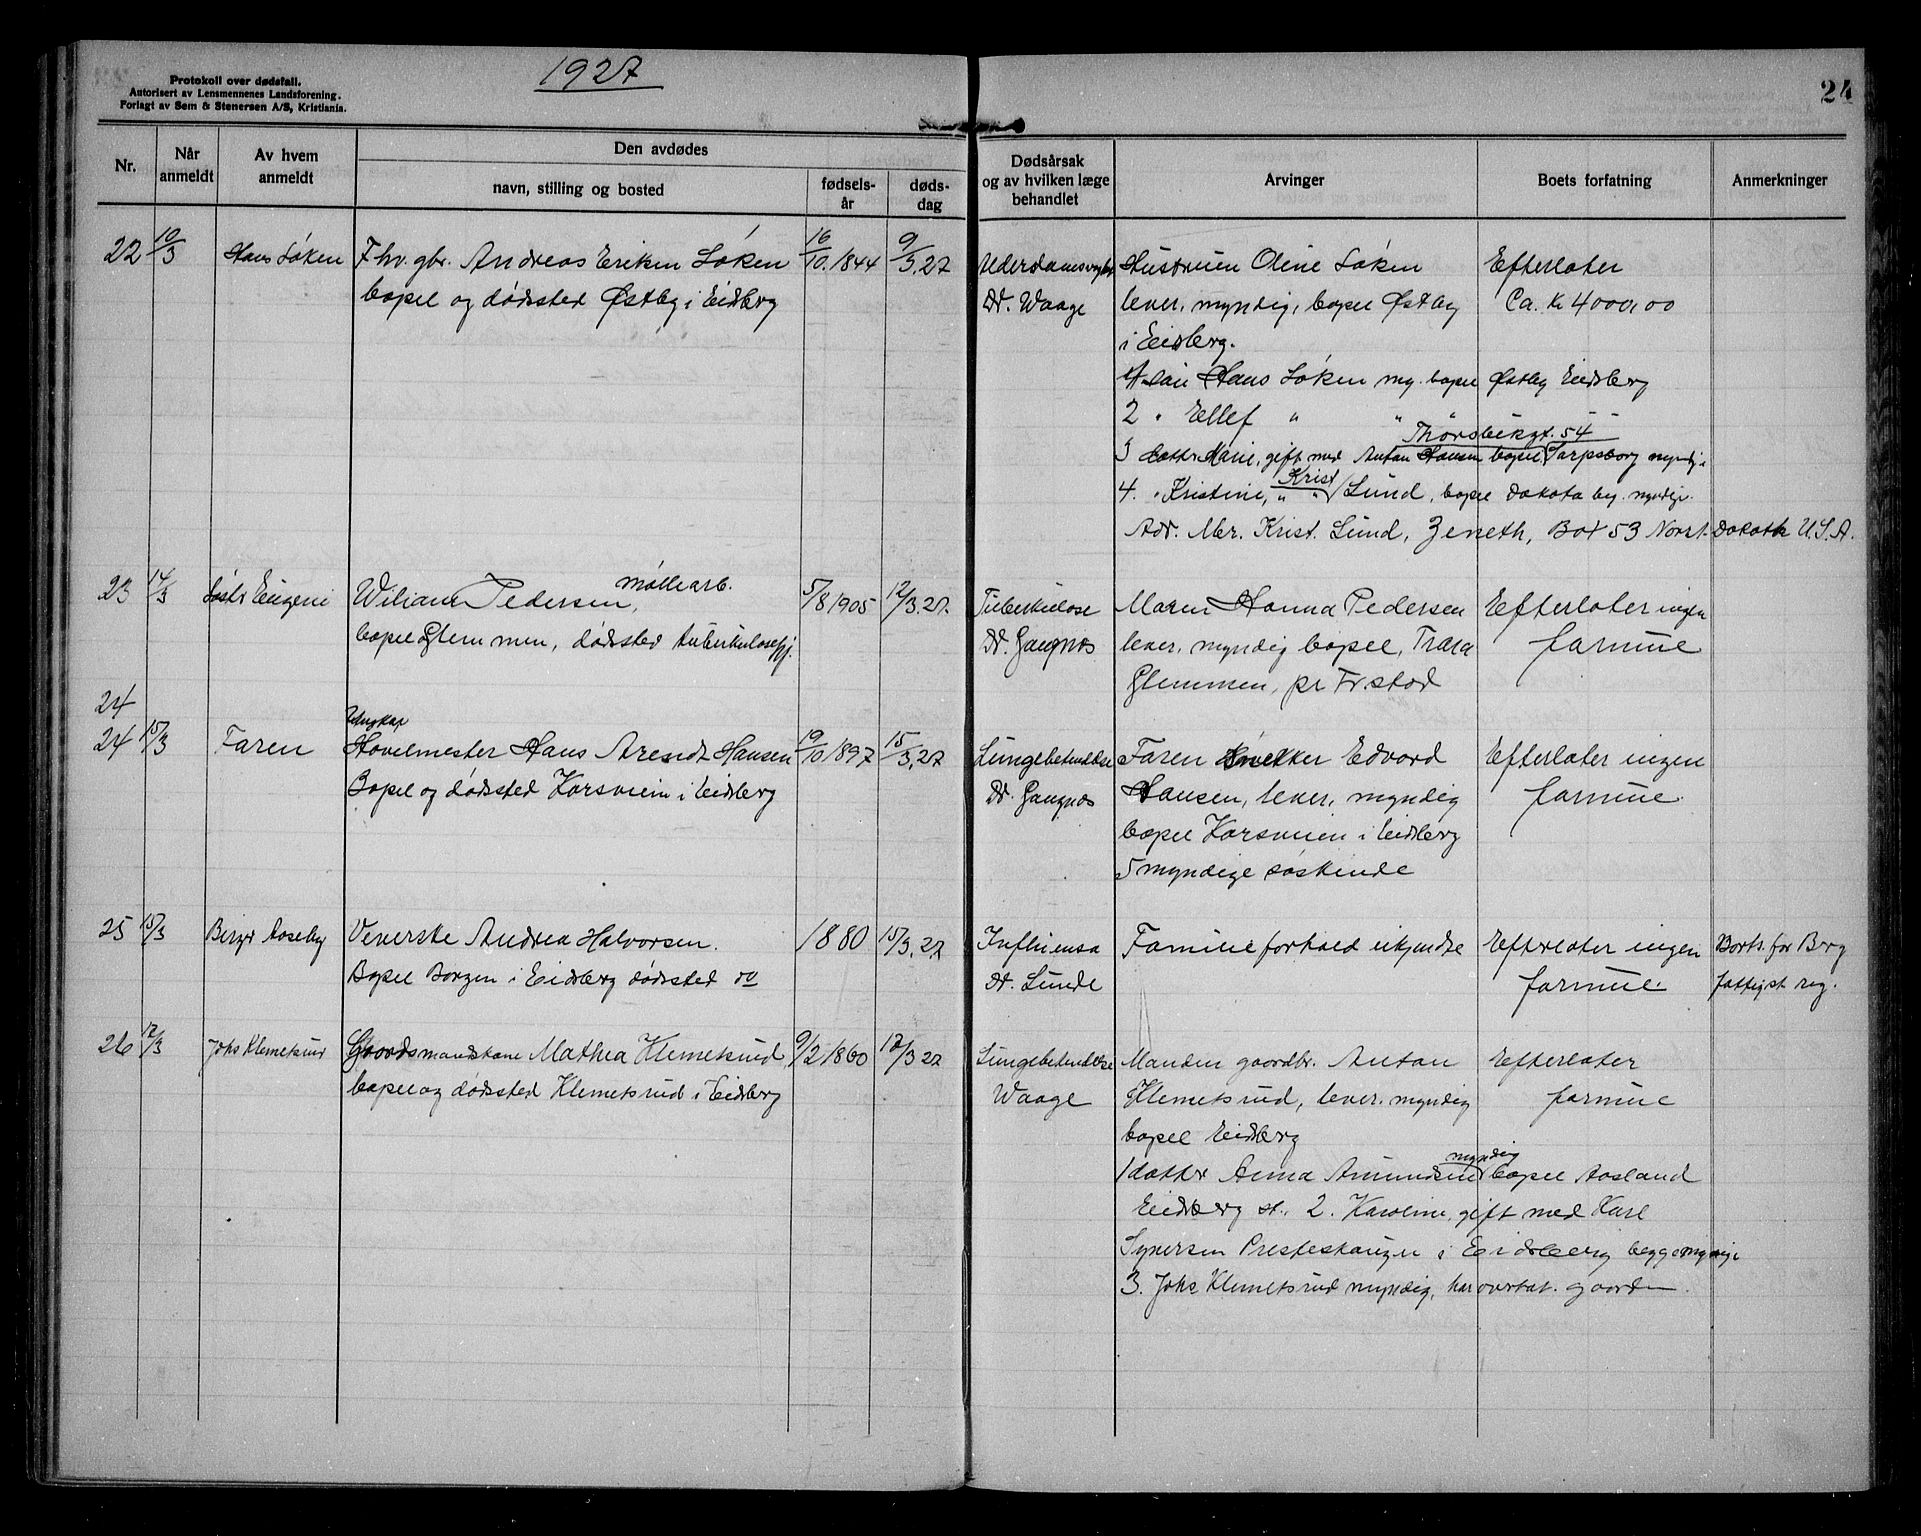 Protokoll over dødsfall.
Autorisert av Lensmennenes Landsforening.
Forlagt av Sem & Stenersen A/S, Kristiania.
1927
24
Nr.
Når anmeldt
Av hvem anmeldt
Den avdødes
navn, stilling og bosted
fødsels-år
døds-dag
Dødsårsak og av hvilken læge behandlet
Arvinger
Boets forfatning
Anmerkninger
22 10/3 Hans Løken Fhv. gbr. Andreas Eriksen Løken 16/10.1844 9/3.27
bopel og dødssted Østby i Eidsberg
Dr. Waage
Hustruen Oline Løken
lever, myndig, bopel Østby
i Eidsberg.
Efterlater
Ca. kr 4000,00
1 søn Hans Løken my. bopel Østby Eidsberg
2 " Ellef " "
Thorsbekgt. 54
3 datter Marie, gift med Anton Hansen bopel Sarpsborg myndig
Krist
4. " Kristine, " " Lund, bopel Dakota by. myndige.
Adr. Mr. Krist. Lund, Zeneth, Box 53 Norst. Dakota U.S.A.
23 14/3 Søstr Eugeni Wiliam Pedersen, møllearb. 5/8 1905 12/3.27.
bopel Glemmen, dødssted tuberkulosehj.
Tuberkulose
Dr. Gaugnæs
Moren Hanna Pedersen
lever, myndig bopel, Trara
Glemmen, pr Fr.stad
Efterlater ingen
formue
24
24 15/3 Faren
Ungkar
Hovelmester Hans Arendt Hansen 19/10 1897 15/3.27
Bopel og dødssted Korsveien i Eidsberg
Lungebetendelse
Dr. Gaugnæs
Faren snekker Edvard
Hansen, lever, myndig
bopel Korsveien i Eidsberg
5 myndige søskende
Efterlater ingen
formue.
25 15/3 Birger Aaseby Veverske Andrea Halvorsen. 1880 15/3.27
Bopel Borgen i Eidsberg dødssted do
Influensa
Dr. Lunde
Familieforhold ukjendte
Efterlater ingen
formue.
Borts. for Berg
fattigst reg.
26 17/3 Johs Klemetsrud Gaardsmandskone Mathea Klemetsrud 9/2 1860 17/3 27
bopel og dødssted Klemetsrud i Eidsberg
Lungebetendelse
Waage
Manden gaardbr. Anton
Klemetsrud, lever. myndig
bopel Eidsberg
Efterlater
formue
myndig
1 datter Anna Amundsen bopel Aasland
Eidsberg st., 2. Karoline, gift med Karl
Syversen Presteskaugen i Eidsberg begge myndige
3. Johs Klemetsrud myndig, har overtat. gaarden.